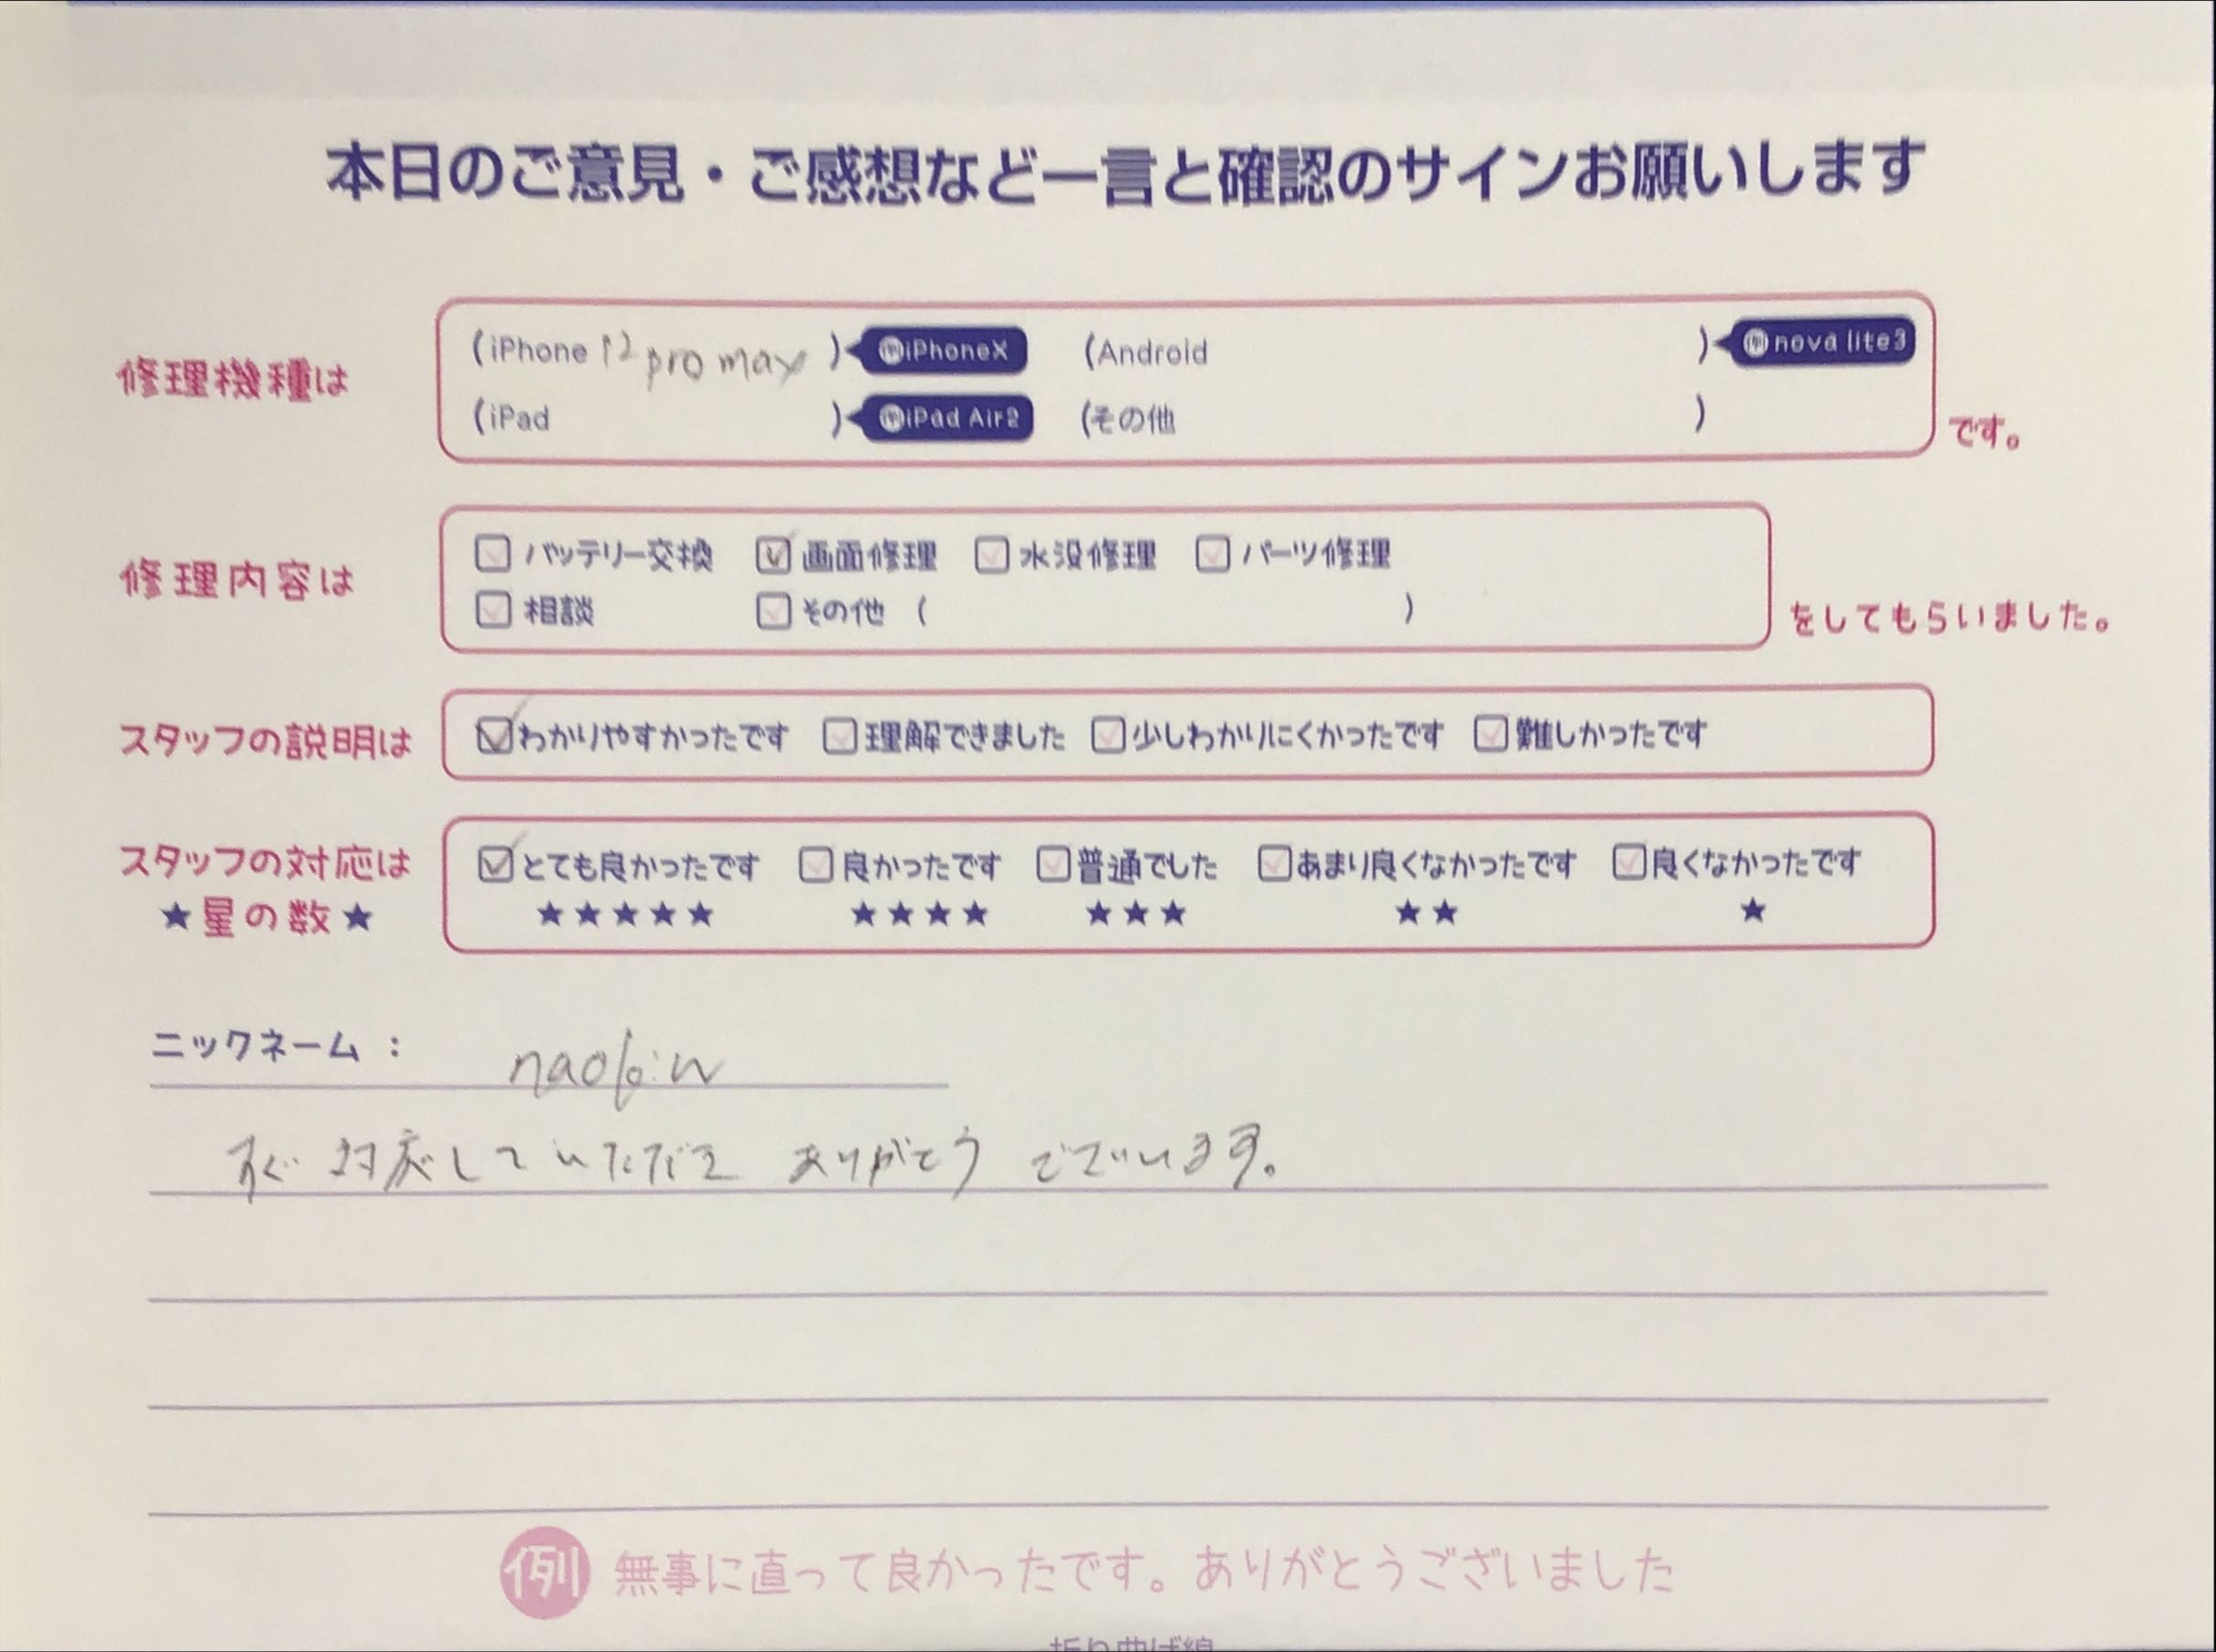 本日のご意見・ご感想など一言と確認のサインお願いします
修理機種は (iPhone 12 pro max ) 例iPhoneX (Android ) 例nova lite3
(iPad ) 例iPad Air2 (その他 ) です。
修理内容は □バッテリー交換 ☑画面修理 □水没修理 □パーツ修理
□相談 □その他 ( ) をしてもらいました。
スタッフの説明は ☑わかりやすかったです □理解できました □少しわかりにくかったです □難しかったです
スタッフの対応は ☑とても良かったです □良かったです □普通でした □あまり良くなかったです □良くなかったです
★星の数★ ★★★★★ ★★★★ ★★★ ★★ ★
ニックネーム：
すぐ対応していただき ありがとう ございます。
例 無事に直って良かったです。ありがとうございました
折り曲げ線